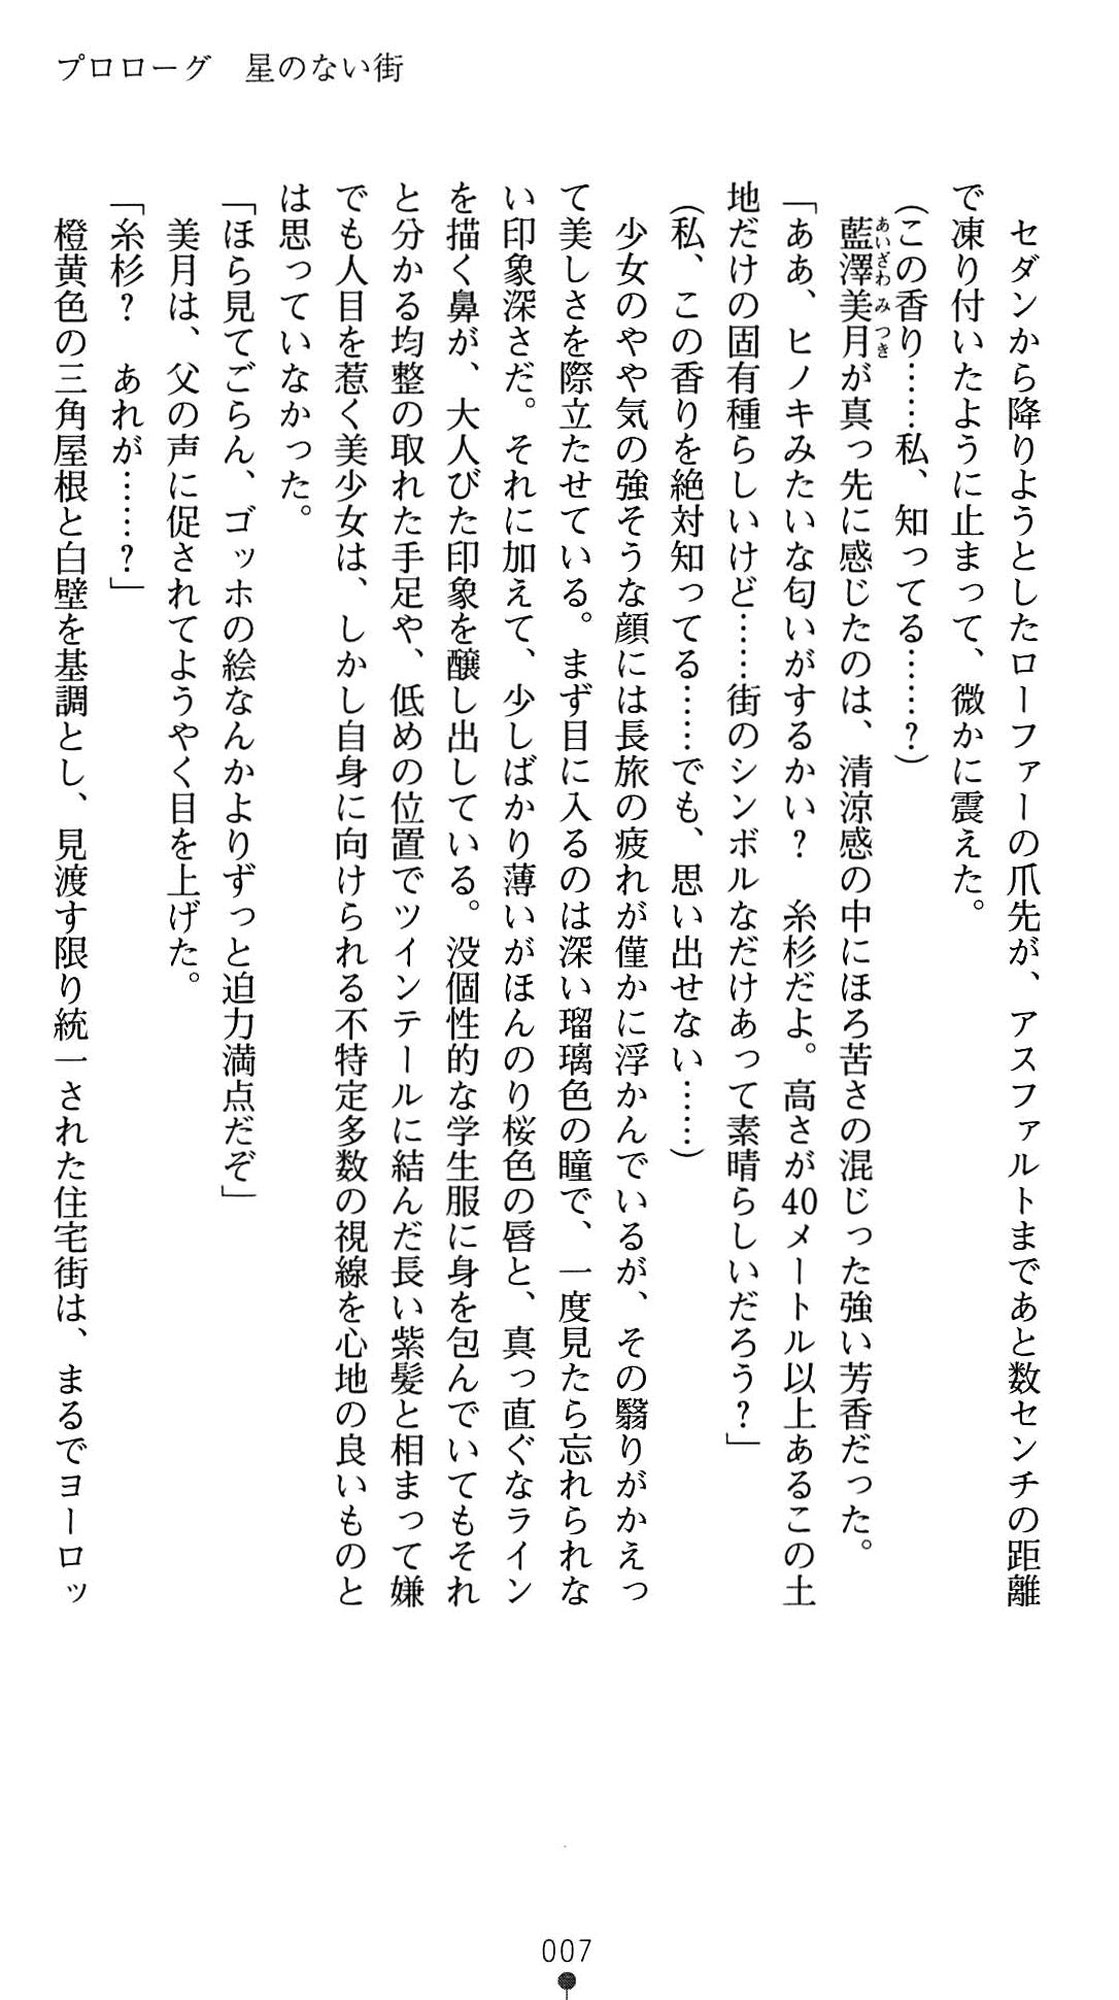 プロローグ　星のない街
　セダンから降りようとしたローファーの爪先が、アスファルトまであと数センチの距離
で凍り付いたように止まって、微かに震えた。
(この香り……私、知ってる……？)
　藍澤美月が真っ先に感じたのは、清涼感の中にほろ苦さの混じった強い芳香だった。
あいざわ　みつき
「ああ、ヒノキみたいな匂いがするかい？　糸杉だよ。高さが40メートル以上あるこの土
地だけの固有種らしいけど……街のシンボルなだけあって素晴らしいだろう？」
(私、この香りを絶対知ってる……でも、思い出せない……)
　少女のやや気の強そうな顔には長旅の疲れが僅かに浮かんでいるが、その翳りがかえっ
て美しさを際立たせている。まず目に入るのは深い瑠璃色の瞳で、一度見たら忘れられな
い印象深さだ。それに加えて、少しばかり薄いがほんのり桜色の唇と、真っ直ぐなライン
を描く鼻が、大人びた印象を醸し出している。没個性的な学生服に身を包んでいてもそれ
と分かる均整の取れた手足や、低めの位置でツインテールに結んだ長い紫髪と相まって嫌
でも人目を惹く美少女は、しかし自身に向けられる不特定多数の視線を心地の良いものと
は思っていなかった。
「ほら見てごらん、ゴッホの絵なんかよりずっと迫力満点だぞ」
　美月は、父の声に促されてようやく目を上げた。
「糸杉？　あれが……？」
　橙黄色の三角屋根と白壁を基調とし、見渡す限り統一された住宅街は、まるでヨーロッ
007